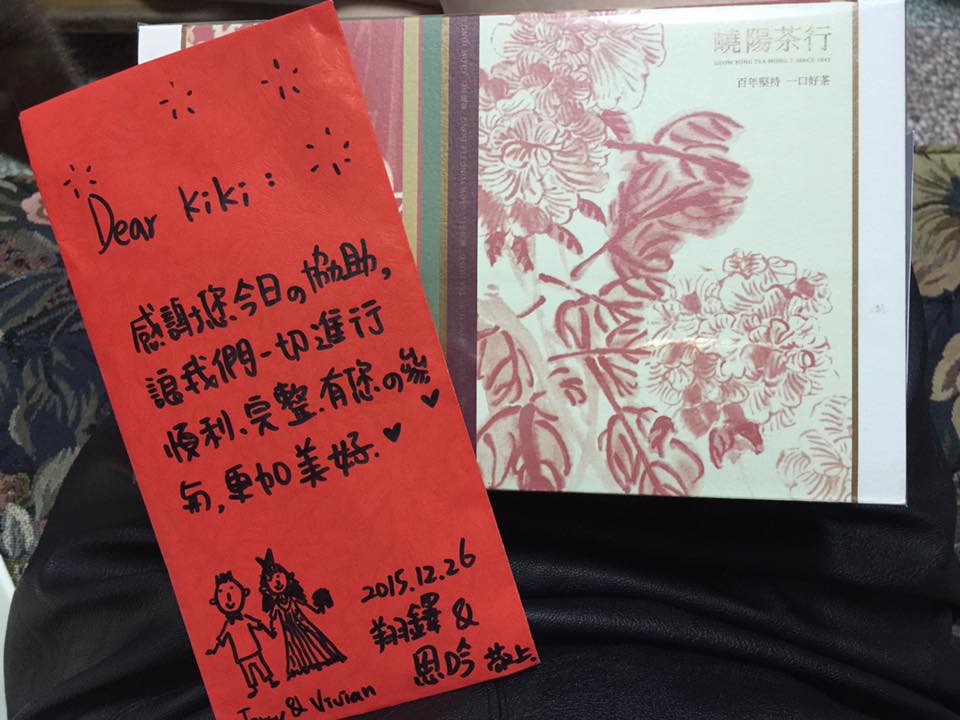 Dear Kiki:
感謝您今日の協助,
讓我們一切進行
順利、完整、有您の參
与,更加美好.
2015.12.26
翔鐸 &
恩吟 敬上.
& Vivian
嶢陽茶行
GEOW YONG TEA HONG | SINCE 1842
百年堅持 一口好茶